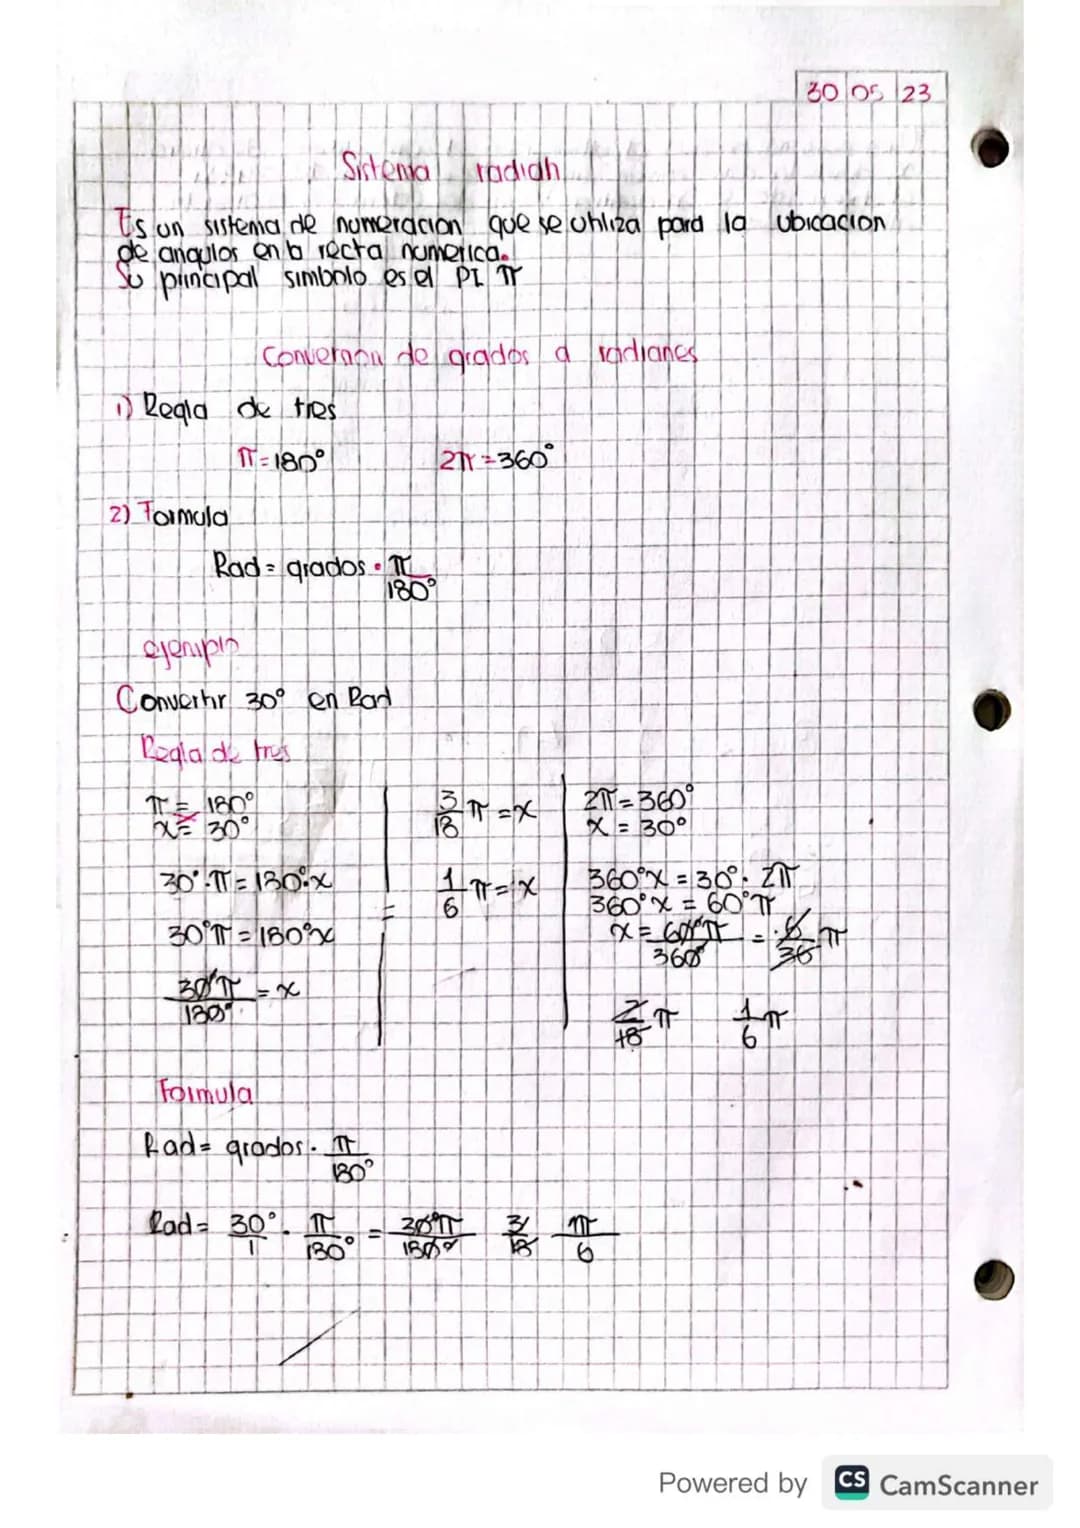 30 05 23
Sistema radian
Es un sistema de numeracion que se utiliza para la ubicacion
de angulos en la recta numerica.
Su principal simbolo es el PI π
Conversion de grados a radianes
1) Regla de tres
π = 180° 2π = 360°
2) Formula
Rad = grados · π
180°
ejemplo
Convertir 30° en Rad
Regla de tres
π = 180°
x = 30°
30° · π = 180° · x
30°π = 180°x
30°π = x
180°
3 π = x
18
1 π = x
6
2π = 360°
x = 30°
360°x = 30° · 2π
360°x = 60°π
x = 60°π = 6 π
360° 36
2 π 1 π
18 6
Formula
Rad = grados · π
180°
Rad = 30° · π = 30°π 3 π
1 180° 180° 18 6
Powered by CS CamScanner